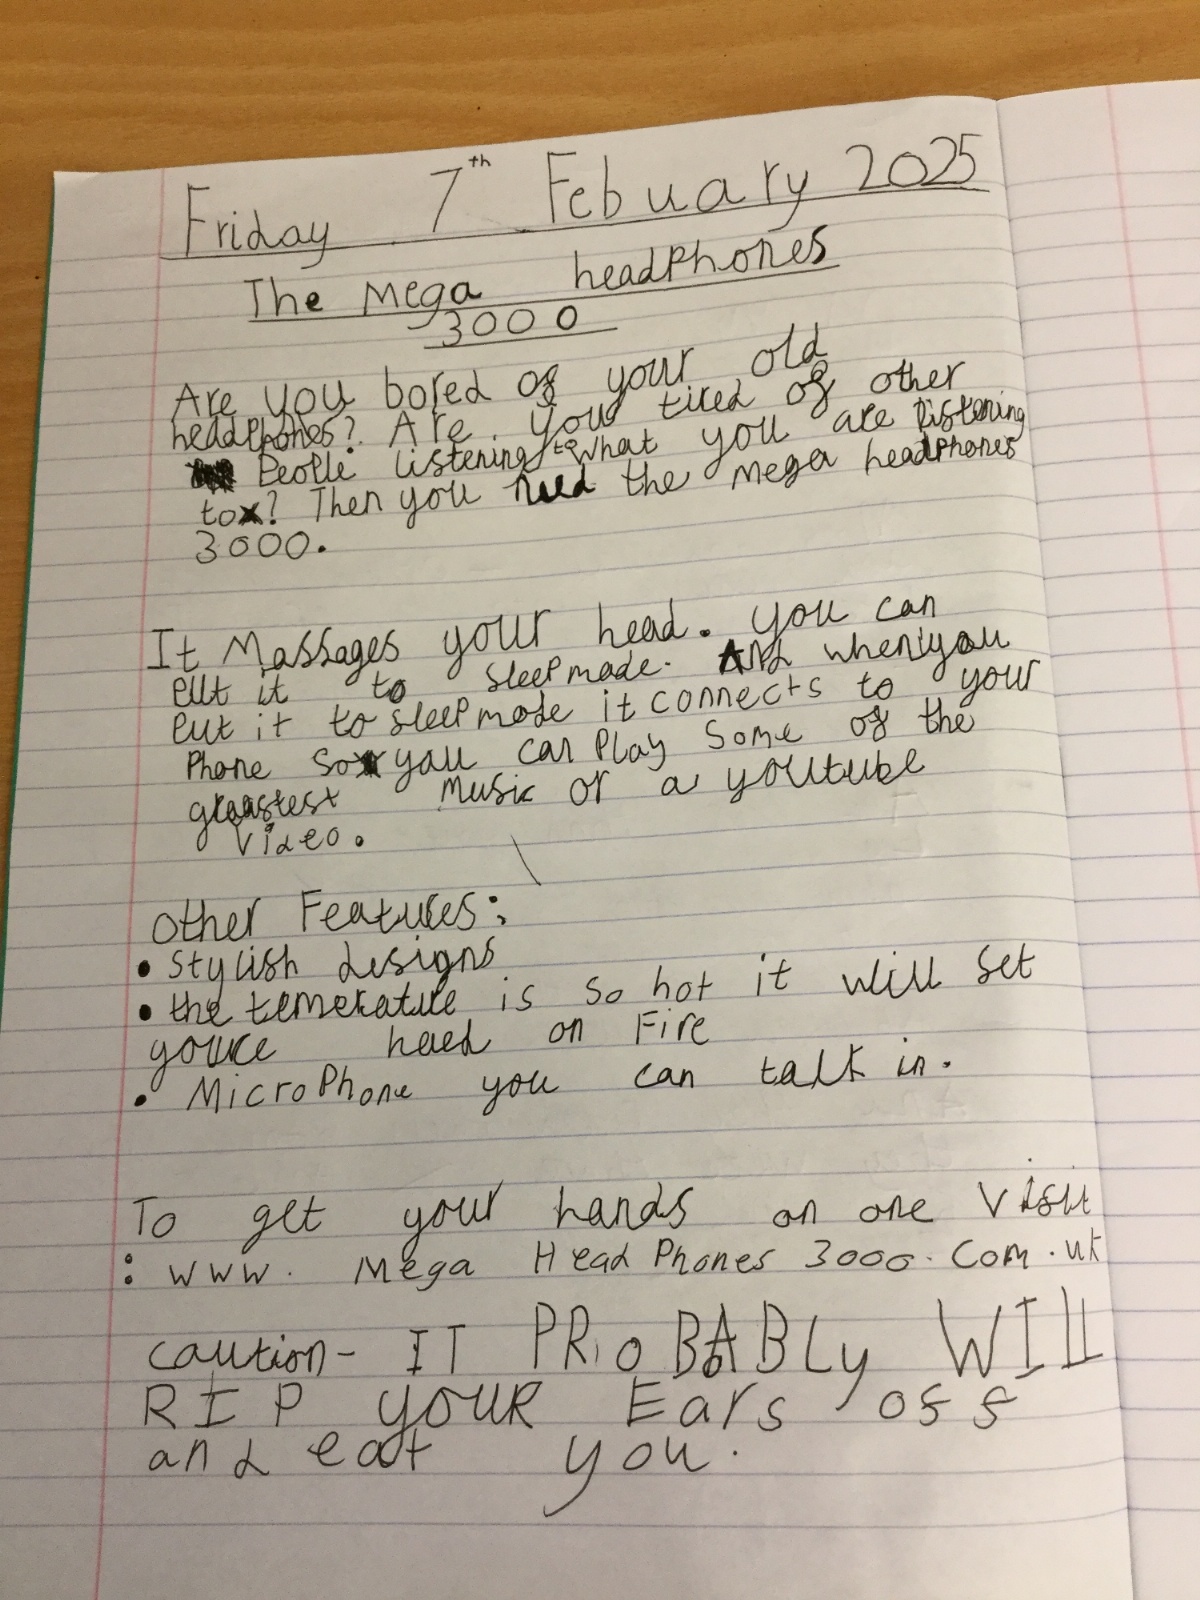 Friday 7th Febuary 2025
The Mega headphones
3000
Are you bored of your old
headphones? Are you tired of other
People listening to what you are listening
to? Then you need the mega headphones
3000.
It Massages your head. You can
put it to sleep mode. And when you
put it to sleep mode it connects to your
Phone so you can play some of the
greastest music or a youtube
video.
Other Features:
• stylish designs
• the temerature is so hot it will set
youre haed on Fire
• Microphone you can talk in.
To get your hands on one visit
: www. Mega Head Phones 3000. Com.uk
caution- IT PRoBABLy WILL
RIP YOUR Ears off
and eat you.